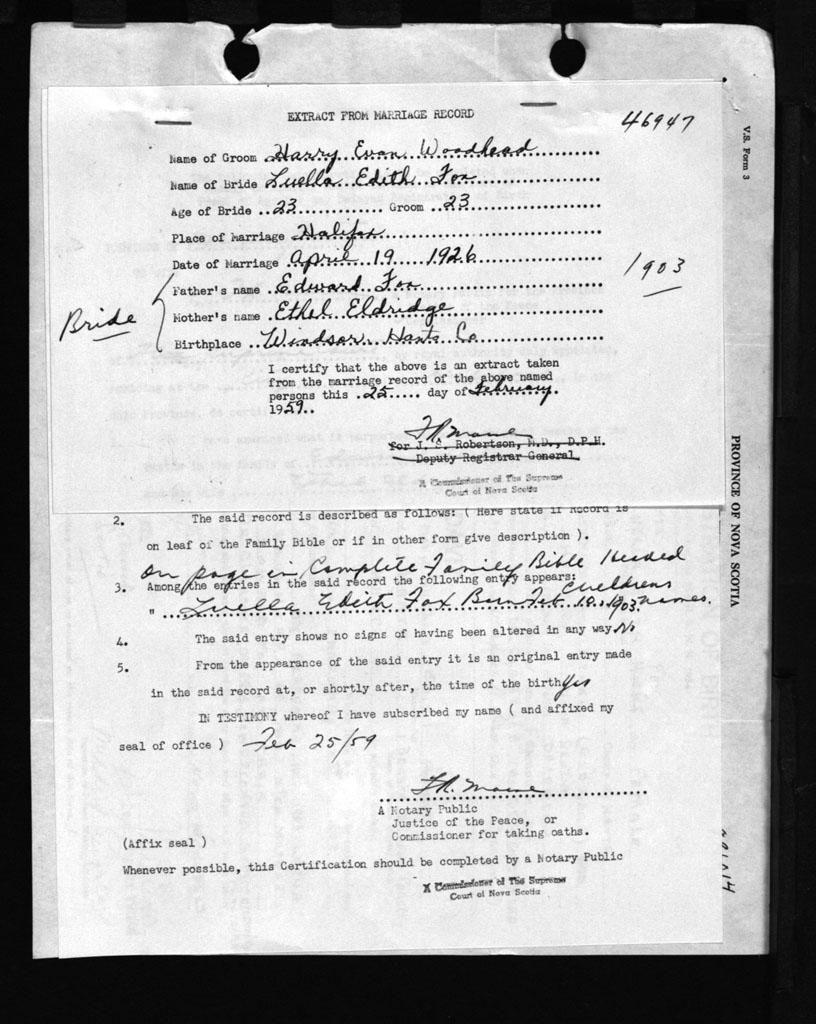 EXTRACT FROM MARRIAGE RECORD
46947
V.S. Form 3
Name of Groom Harry Evan Woodhead
Name of Bride Luella Edith Fox
Age of Bride 23 Groom 23
Place of Marriage Halifax
Date of Marriage April 19 1926
1903
Bride
Father's name Edward Fox
Mother's name Ethel Eldridge
Birthplace Windsor Hants Co
I certify that the above is an extract taken
from the marriage record of the above named
persons this 25 day of February
1959..
for J. S. Robertson, M.D., D.P.H.
Deputy Registrar General
A Commissioner of The Supreme
Court of Nova Scotia
PROVINCE OF NOVA SCOTIA
2. The said record is described as follows: ( Here state if Record is
on leaf of the Family Bible or if in other form give description ).
On page in Complete Family Bible Headed
3. Among the entries in the said record the following entry appears:
Childrens
" Luella Edith Fox Born Feb 10, 1903. names.
4. The said entry shows no signs of having been altered in any way No
5. From the appearance of the said entry it is an original entry made
in the said record at, or shortly after, the time of the birth Yes
IN TESTIMONY whereof I have subscribed my name ( and affixed my
seal of office ) Feb 25/59
A Notary Public
Justice of the Peace, or
Commissioner for taking oaths.
(Affix seal )
Whenever possible, this Certification should be completed by a Notary Public
A Commissioner of The Supreme
Court of Nova Scotia